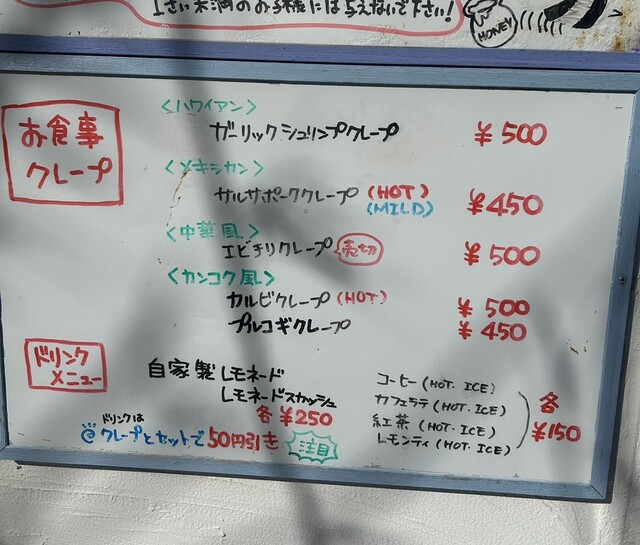 1さい未満のお子様には与えないで下さい!
HONEY
お食事
クレープ
<ハワイアン>
ガーリックシュリンプクレープ ¥500
<メキシカン>
サルサポーククレープ (HOT) (MILD) ¥450
<中華風>
エビチリクレープ 売切 ¥500
<カンコク風>
カルビクレープ (HOT) ¥500
プルコギクレープ ¥450
ドリンク
メニュー
自家製レモネード
レモネードスカッシュ
各 ¥250
ドリンクは
@クレープとセットで50円引き 注目
コーヒー (HOT・ICE)
カフェラテ (HOT・ICE)
紅茶 (HOT・ICE)
レモンティ (HOT・ICE)
各
¥150